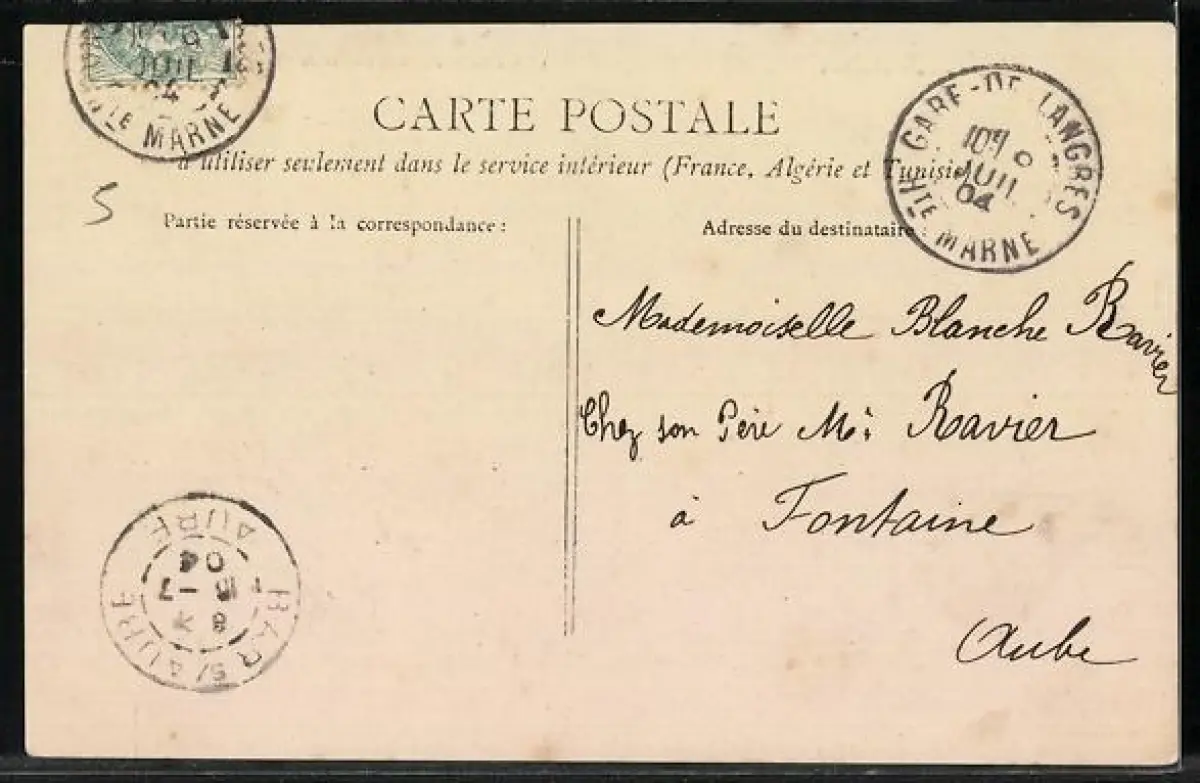 CARTE POSTALE
à utiliser seulement dans le service intérieur (France, Algérie et Tunisie)
Partie réservée à la correspondance :
Adresse du destinataire :
5
Mademoiselle Blanche Ravier
Chez son Père Mr: Ravier
à Fontaine
Aube
GARE-DE LANGRES
JUIL
04
HTE MARNE
JUIL
04
HTE MARNE
BAR S/AUBE
AUBE
04